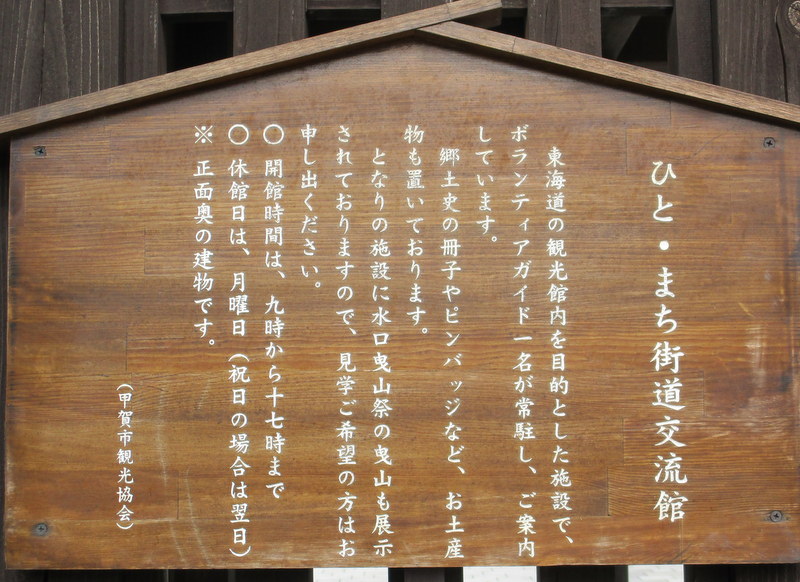 ひと・まち街道交流館
東海道の観光館内を目的とした施設で、
ボランティアガイド一名が常駐し、ご案内
しています。
郷土史の冊子やピンバッジなど、お土産
物も置いております。
となりの施設に水口曳山祭の曳山も展示
されておりますので、見学ご希望の方はお
申し出ください。
〇 開館時間は、九時から十七時まで
〇 休館日は、月曜日(祝日の場合は翌日)
※ 正面奥の建物です。
(甲賀市観光協会)